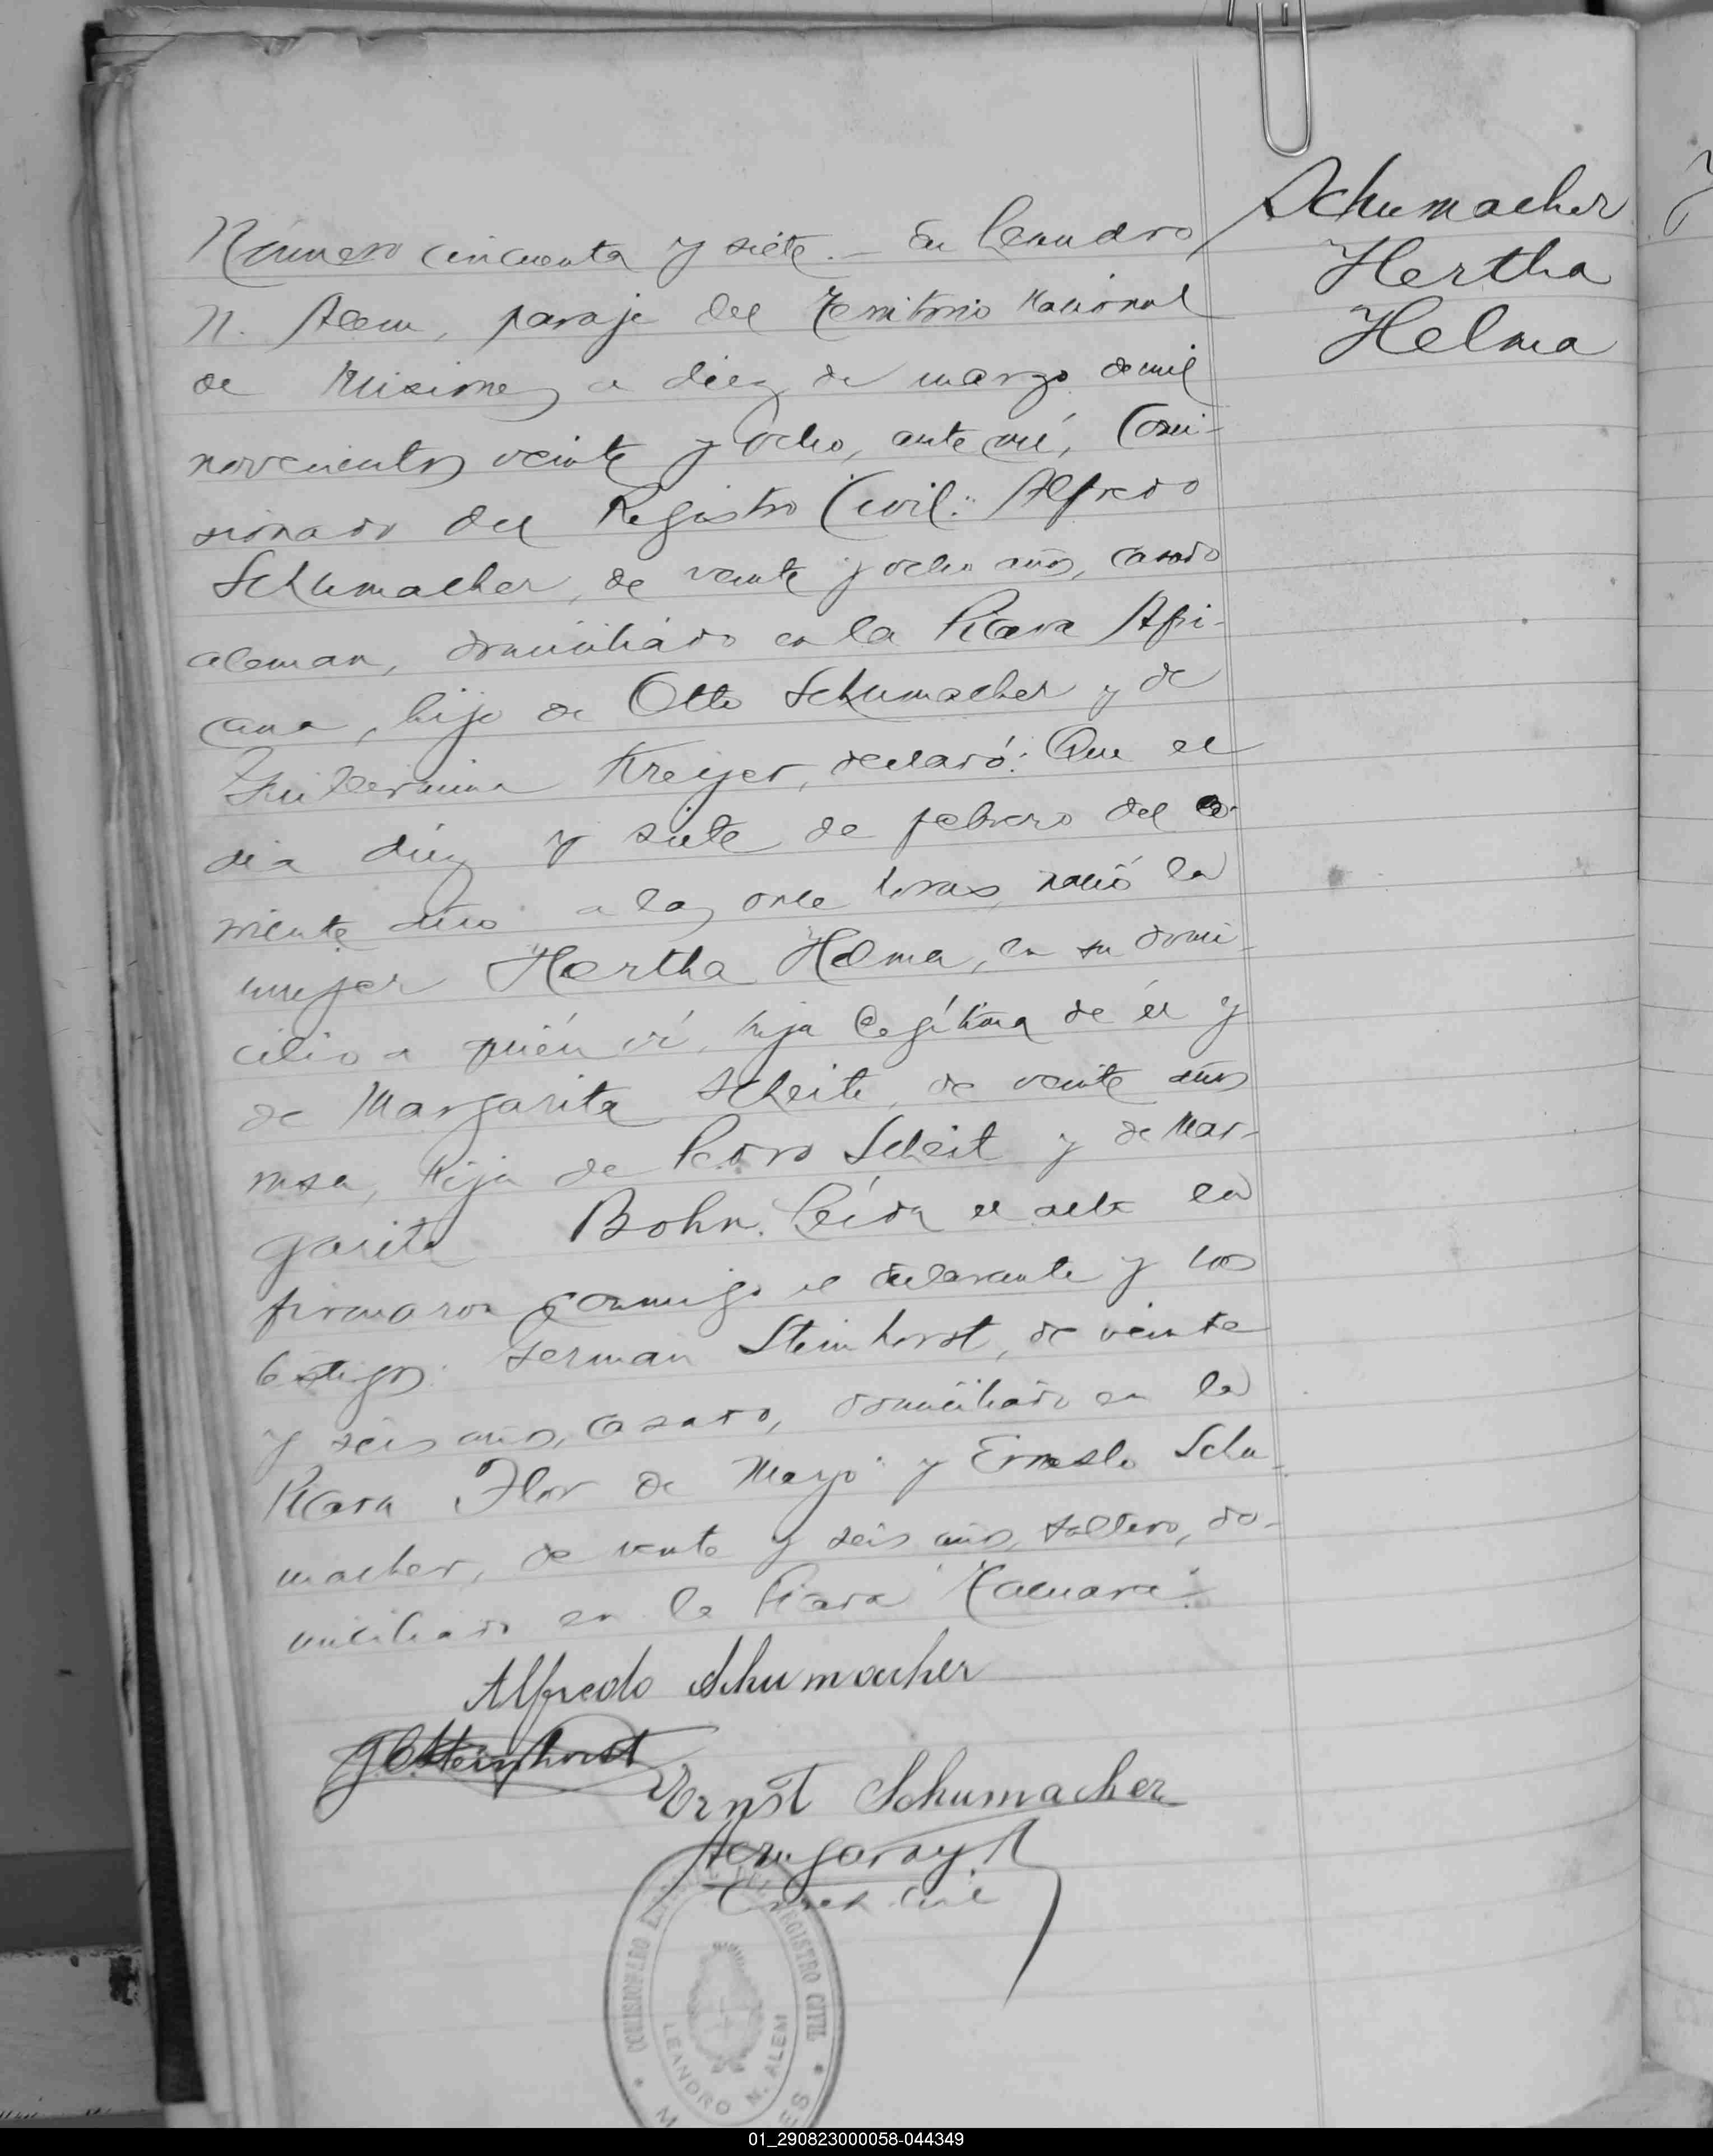 Schumacher
Hertha
Helma
Número cincuenta y siete.- En Leandro
N. Alem, paraje del Territorio Nacional
de Misiones a diez de marzo de mil
novecientos veinte y ocho, ante mí, Comi-
sionado del Registro Civil: Alfredo
Schumacher, de veinte y ocho años, casado
aleman, domiciliado en la Picada Afri-
cana, hijo de Otto Schumacher y de
Guillermina Kreyer, declaró: Que el
dia diez y siete de febrero del co-
rriente año a las once horas, nació la
mujer Hertha Helma, en su domi-
cilio a quién ví, hija legítima de él y
de Margarita Scheite, de veinte años
rusa, hija de Pedro Scheit y de Mar-
garita Bohn. Leída el acta la
firmaron conmigo el declarante y los
testigos: German Steinhorst, de veinte
y seis años, casado, domiciliado en la
Picada Flor de Mayo y Ernesto Schu-
macher, de veinte y seis años, soltero, do-
miciliado en la Picada
Alfredo Schumacher
Steinhorst
Ernst Schumacher
COMISIONADO REGISTRO CIVIL
LEANDRO N. ALEM
01_290823000058-044349